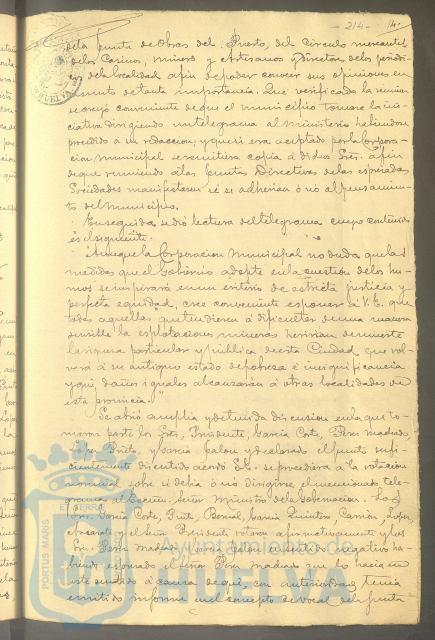 - 214 -
dela Junta de Obras del Puerto, del Circulo mercantil
delos Casinos, minero y Artesanos y directores delos periodi-
cos dela localidad afin depoder conocer sus opiniones en
asunto de tanta importancia. Que verificada la reunion
se creyó conveniente de que el municipio tomase la ini-
ciativa dirigiendo un telegrama al Ministerio habiendose
procedido a su redaccion, y que si era aceptado por la Corpora-
cion municipal se remitiera copia á dichos Sres. a fin
de que reuniendo á las Juntas Directivas de las expresadas
Sociedades manifestasen si se adherian ó nó al pensamien-
to del municipio.
Enseguida se dió lectura del telegrama cuyo contenido
es el siguiente.
"Aunque la Corporacion municipal no duda que las
medidas que el Gobierno adopte en la cuestion de los hu-
mos se inspirará en un criterio de estricta justicia y
perfecta equidad, cree conveniente esponer á V. E. que
todas aquellas que tendieren á dificultar de una manera
sensible la esplotaciones mineras heririan de muerte
la riqueza particular y pública de esta Ciudad que vol-
verá á su antiguo estado de pobreza é insignificancia
y que daños iguales alcanzarán á otras localidades de
esta provincia."
Se abrió amplia y detenida discusion en la que to-
maron parte los Sres. Presidente, Garcia Corte, Perez madrado,
Lopez Prieto, y Garcia Palou y declarado el punto sufi-
cientemente discutido acordó S.E. se procediera á la votacion
nominal sobre si debia ó nó dirigirse el mencionado tele-
grama al Excmo. Señor Ministro dela Gobernacion. Los
Sres. Garcia Corte, Bernal, Garcia Quintero, Carrion, Lopez,
el Señor Presidente votaron afirmativamente y los
Sres. Perez madrado y Garcia Palou en sentido negativo ha-
biendo espresado el señor Perez madrado que lo hacia en
este sentido á causa de que, con anterioridad, tenia
emitido informe en el concepto de vocal dela Junta
PORTUS MARIS
ET TERRAE
Ayuntamiento de
HUELVA